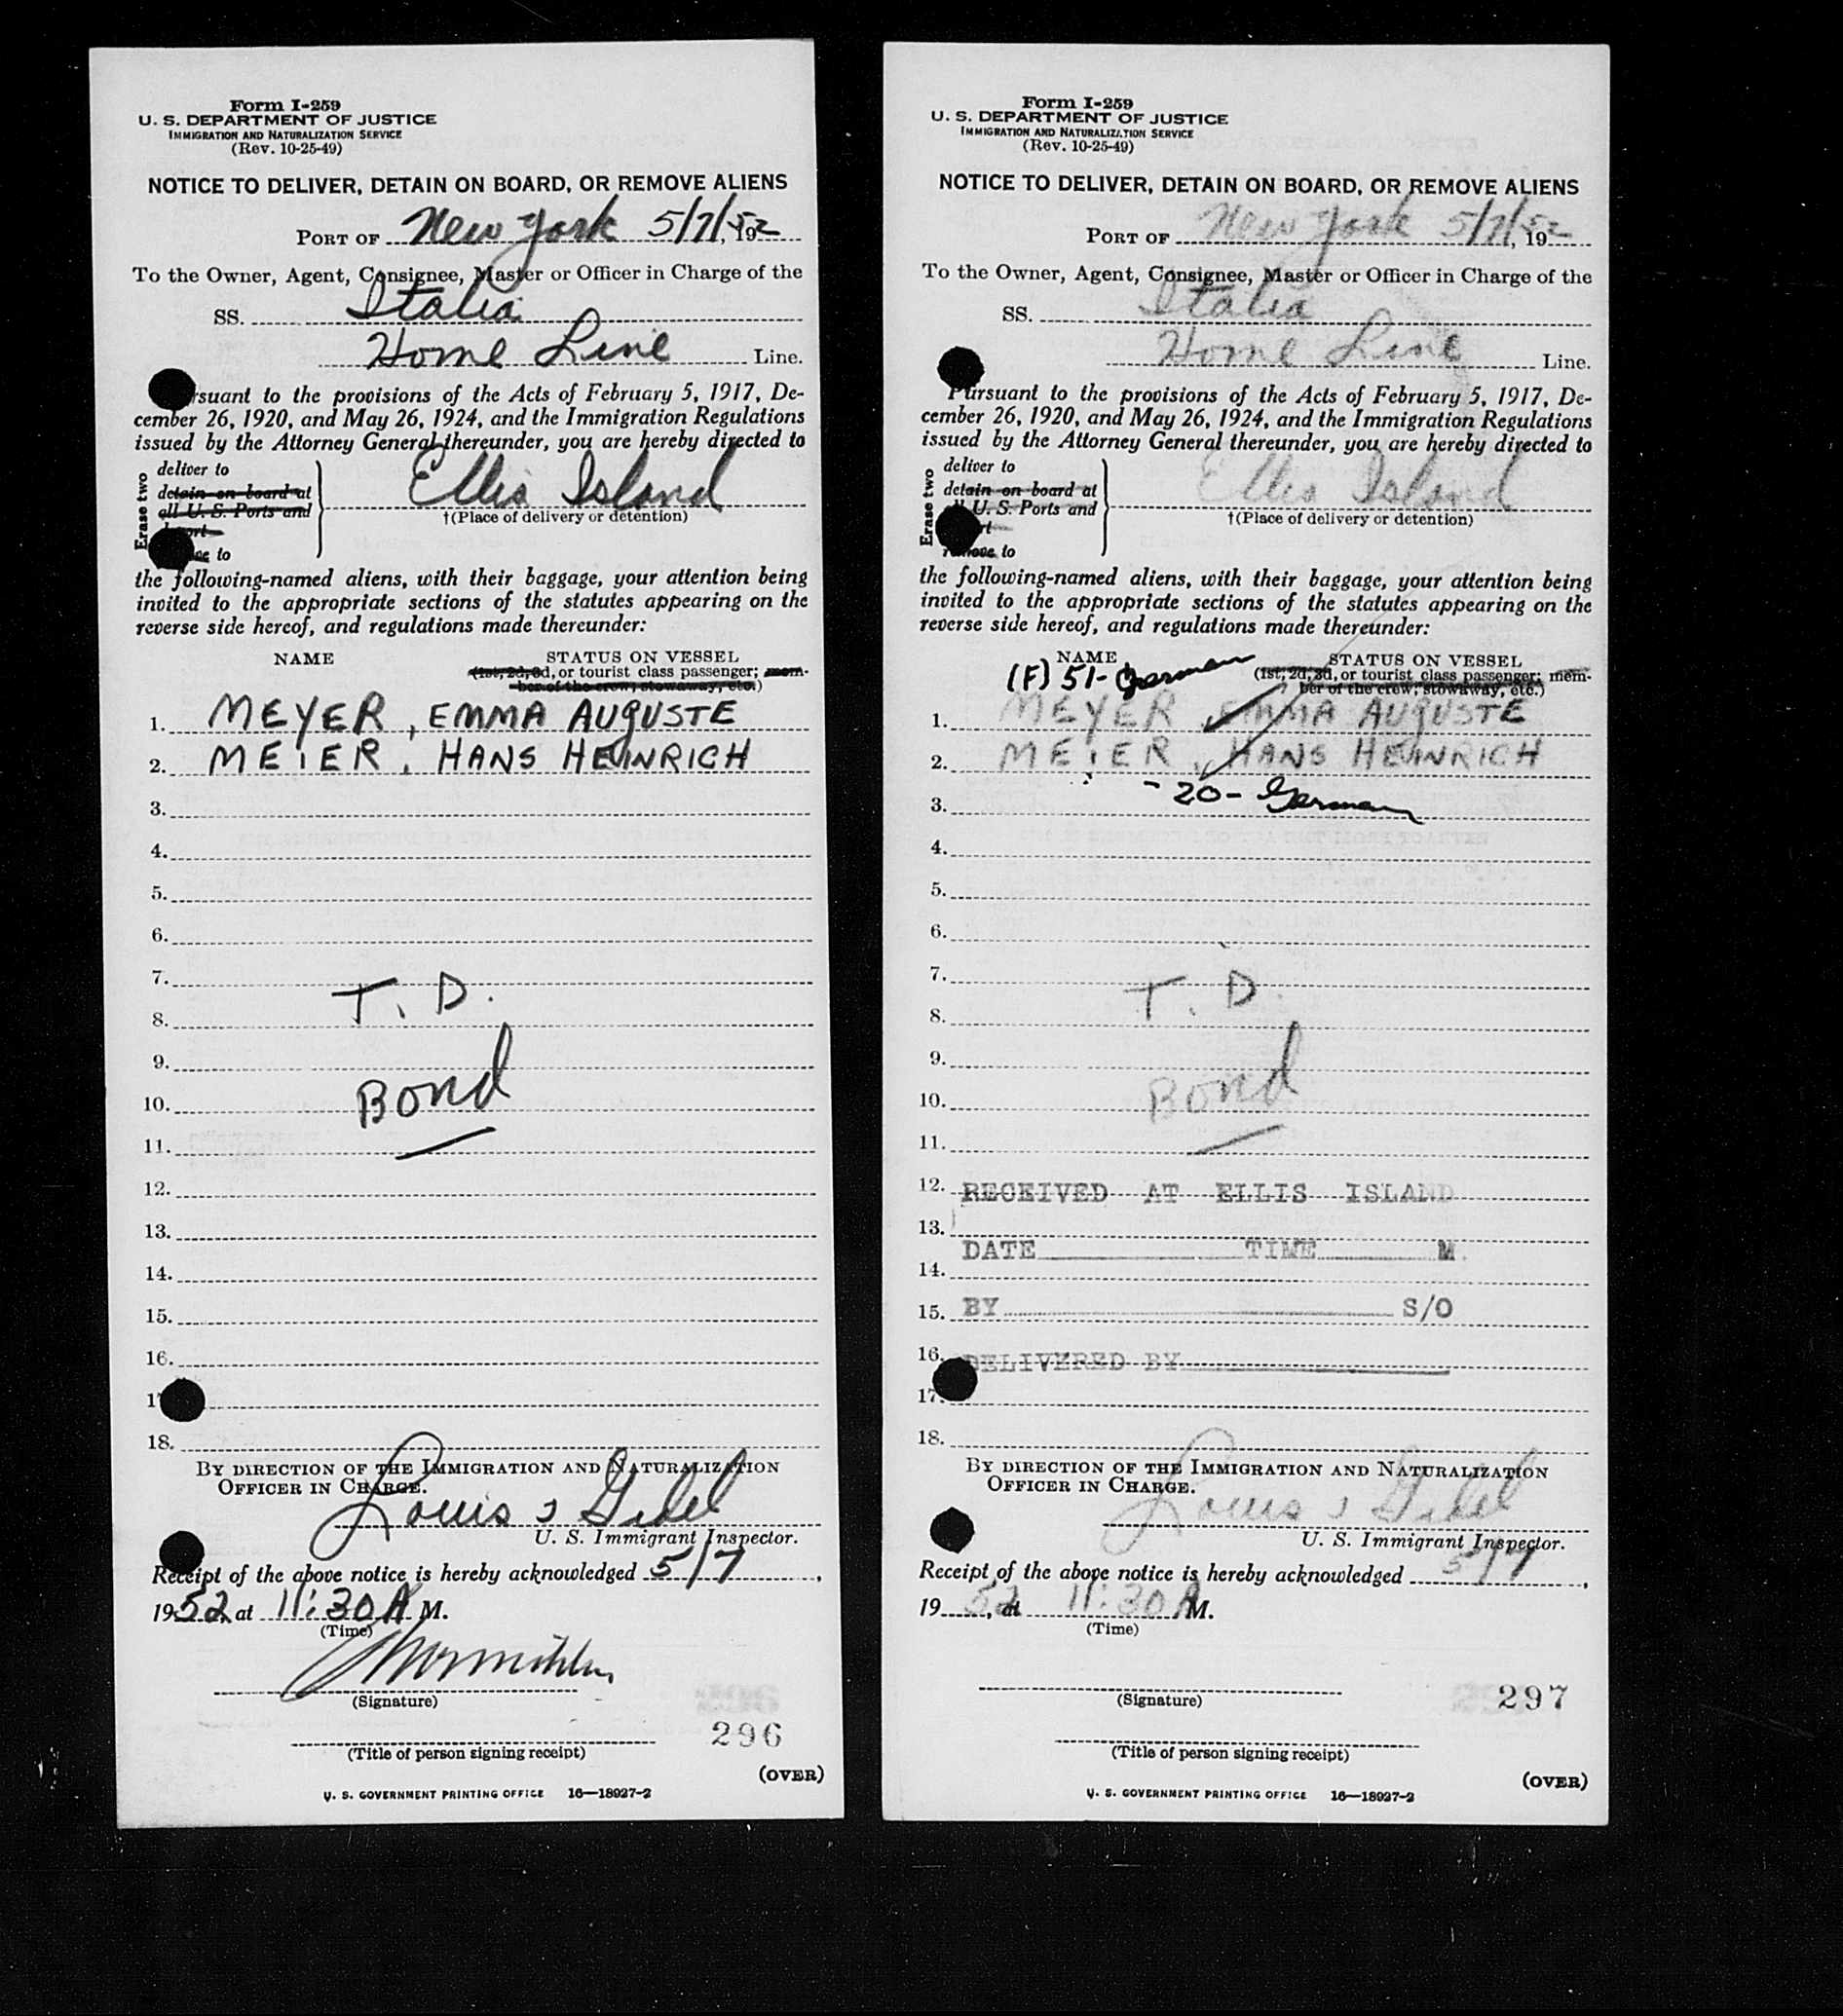 Form I-259
U. S. DEPARTMENT OF JUSTICE
IMMIGRATION AND NATURALIZATION SERVICE
(Rev. 10-25-49)
NOTICE TO DELIVER, DETAIN ON BOARD, OR REMOVE ALIENS
PORT OF New York 5/7/52, 19
To the Owner, Agent, Consignee, Master or Officer in Charge of the
SS. Italia
Home Line Line.
rsuant to the provisions of the Acts of February 5, 1917, De-
cember 26, 1920, and May 26, 1924, and the Immigration Regulations
issued by the Attorney General thereunder, you are hereby directed to
Erase two
deliver to
detain on board at
all U. S. Ports and
ort
ve to
Ellis Island
†(Place of delivery or detention)
the following-named aliens, with their baggage, your attention being
invited to the appropriate sections of the statutes appearing on the
reverse side hereof, and regulations made thereunder:
NAME STATUS ON VESSEL
(1st, 2d, 3d, or tourist class passenger; mem-
ber of the crew; stowaway, etc.)
1. MEYER, EMMA AUGUSTE
2. MEIER, HANS HEINRICH
3.
4.
5.
6.
7.
T. D.
8.
9.
10. Bond
11.
12.
13.
14.
15.
16.
17
18.
BY DIRECTION OF THE IMMIGRATION AND NATURALIZATION
OFFICER IN CHARGE.
Louis
U. S. Immigrant Inspector.
Receipt of the above notice is hereby acknowledged 5/7,
1952 at 11:30 A M.
(Time)
(Signature)
296
(Title of person signing receipt)
(OVER)
U. S. GOVERNMENT PRINTING OFFICE 16—18927-2
Form I-259
U. S. DEPARTMENT OF JUSTICE
IMMIGRATION AND NATURALIZATION SERVICE
(Rev. 10-25-49)
NOTICE TO DELIVER, DETAIN ON BOARD, OR REMOVE ALIENS
PORT OF New York 5/7/52, 19
To the Owner, Agent, Consignee, Master or Officer in Charge of the
SS. Italia
Home Line Line.
Pursuant to the provisions of the Acts of February 5, 1917, De-
cember 26, 1920, and May 26, 1924, and the Immigration Regulations
issued by the Attorney General thereunder, you are hereby directed to
Erase two
deliver to
detain on board at
ll U. S. Ports and
rt
remove to
Ellis Island
†(Place of delivery or detention)
the following-named aliens, with their baggage, your attention being
invited to the appropriate sections of the statutes appearing on the
reverse side hereof, and regulations made thereunder:
NAME STATUS ON VESSEL
(F) 51- German (1st, 2d, 3d, or tourist class passenger; mem-
ber of the crew; stowaway, etc.)
1. MEYER, EMMA AUGUSTE
2. MEIER, HANS HEINRICH
3. - 20 - German
4.
5.
6.
7.
T. D.
8.
9.
10. Bond
11.
12. RECEIVED AT ELLIS ISLAND
13.
DATE TIME M.
14.
15. BY S/O
16. DELIVERED BY
17.
18.
BY DIRECTION OF THE IMMIGRATION AND NATURALIZATION
OFFICER IN CHARGE.
Louis
U. S. Immigrant Inspector.
Receipt of the above notice is hereby acknowledged 5/7,
19 52, at 11:30 A M.
(Time)
(Signature)
297
(Title of person signing receipt)
(OVER)
U. S. GOVERNMENT PRINTING OFFICE 16—18927-2